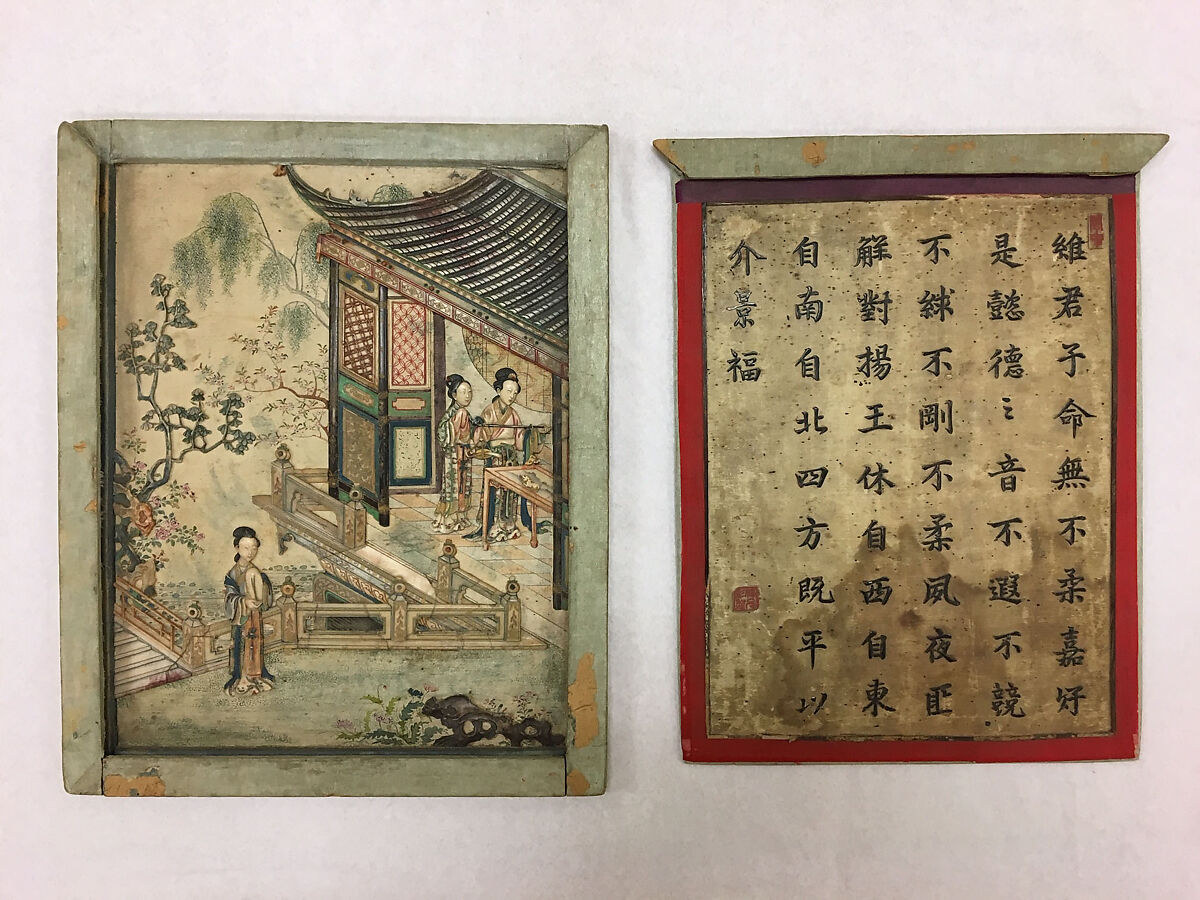 維君子命無不柔嘉好
是懿德之音不遐不競
不絿不剛不柔夙夜匪
解對揚王休自西自東
自南自北四方既平以
介景福